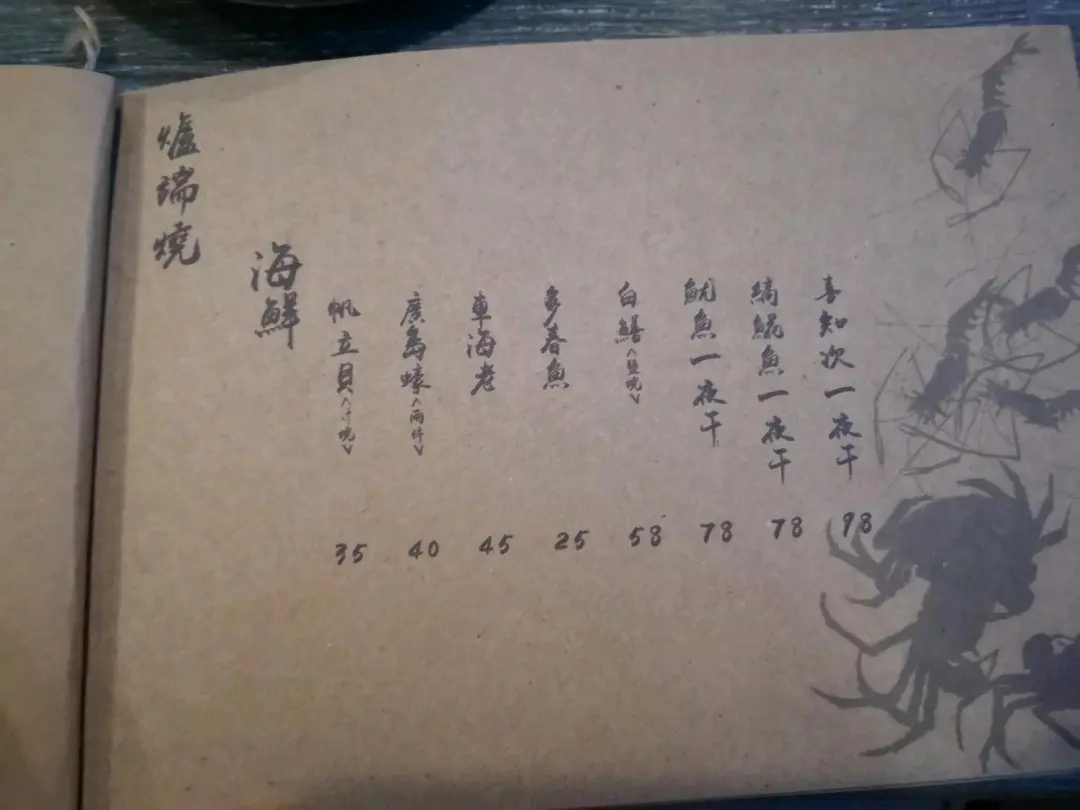 爐端燒
海鮮
帆立貝<汁焼> 35
廣島蠔<兩件> 40
車海老 45
多春魚 25
白鱔<塩焼> 58
魷魚一夜干 78
縞鯤魚一夜干 78
喜知次一夜干 98